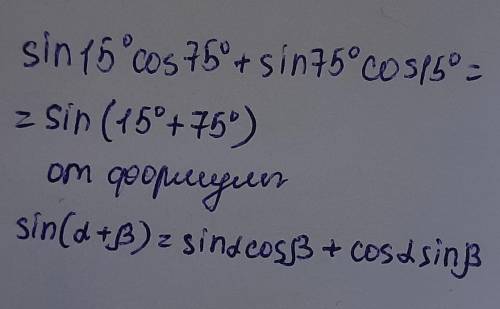 sin15°cos75°+sin75°cos15°=
=sin(15°+75°)
от формулы
sin(α+β)=sinαcosβ+cosαsinβ